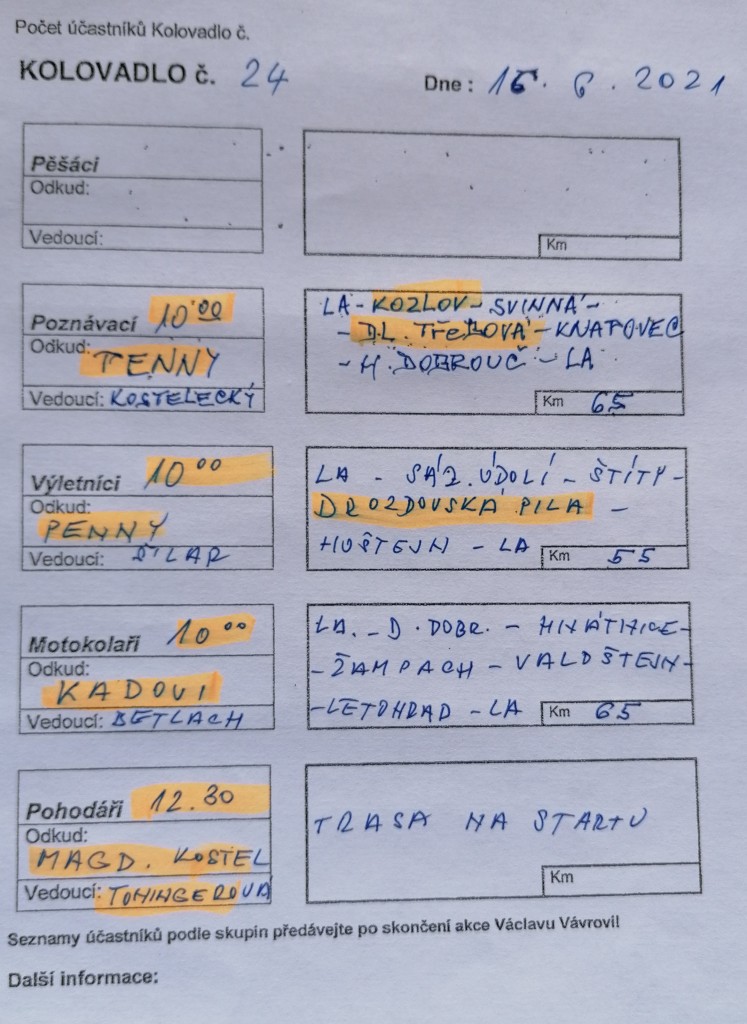 Počet účastníků Kolovadlo č.
KOLOVADLO č. 24 Dne : 16. 6. 2021
Pěšáci
Odkud:
Vedoucí:
Km
Poznávací 10 00
Odkud:
PENNY
Vedoucí: KOSTELECKÝ
LA - KOZLOV - SVINNÁ -
- DL. TŘEBOVÁ - KNAPOVEC
- H. DOBROUČ - LA
Km 65
Výletníci 10 00
Odkud:
PENNY
Vedoucí: ŠILAR
LA - SÁZ. ÚDOLÍ - ŠTÍTY -
DROZDOVSKÁ PILA -
HOŠTEJN - LA
Km 55
Motokolaři 10 00
Odkud:
KADOVI
Vedoucí: BETLACH
LA. - D. DOBR. - HNÁTNICE -
- ŽAMPACH - VALDŠTEJN -
- LETOHRAD - LA
Km 65
Pohodáři 12.30
Odkud:
MAGD. KOSTEL
Vedoucí: TOMINGEROVÁ
TRASA NA STARTU
Km
Seznamy účastníků podle skupin předávejte po skončení akce Václavu Vávrovi!
Další informace: